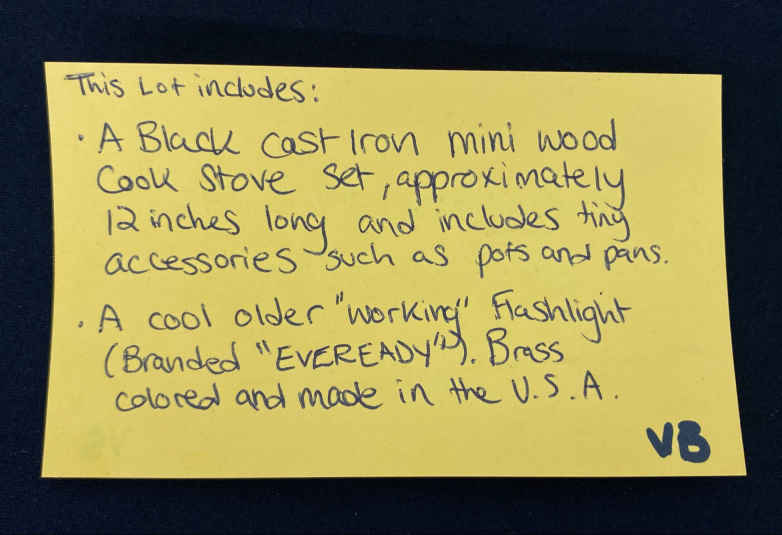 This Lot includes:
· A Black cast Iron mini wood
Cook Stove Set, approximately
12 inches long and includes tiny
accessories such as pots and pans.
· A cool older "working" Flashlight
(Branded "EVEREADY"). Brass
colored and made in the U.S.A.
VB